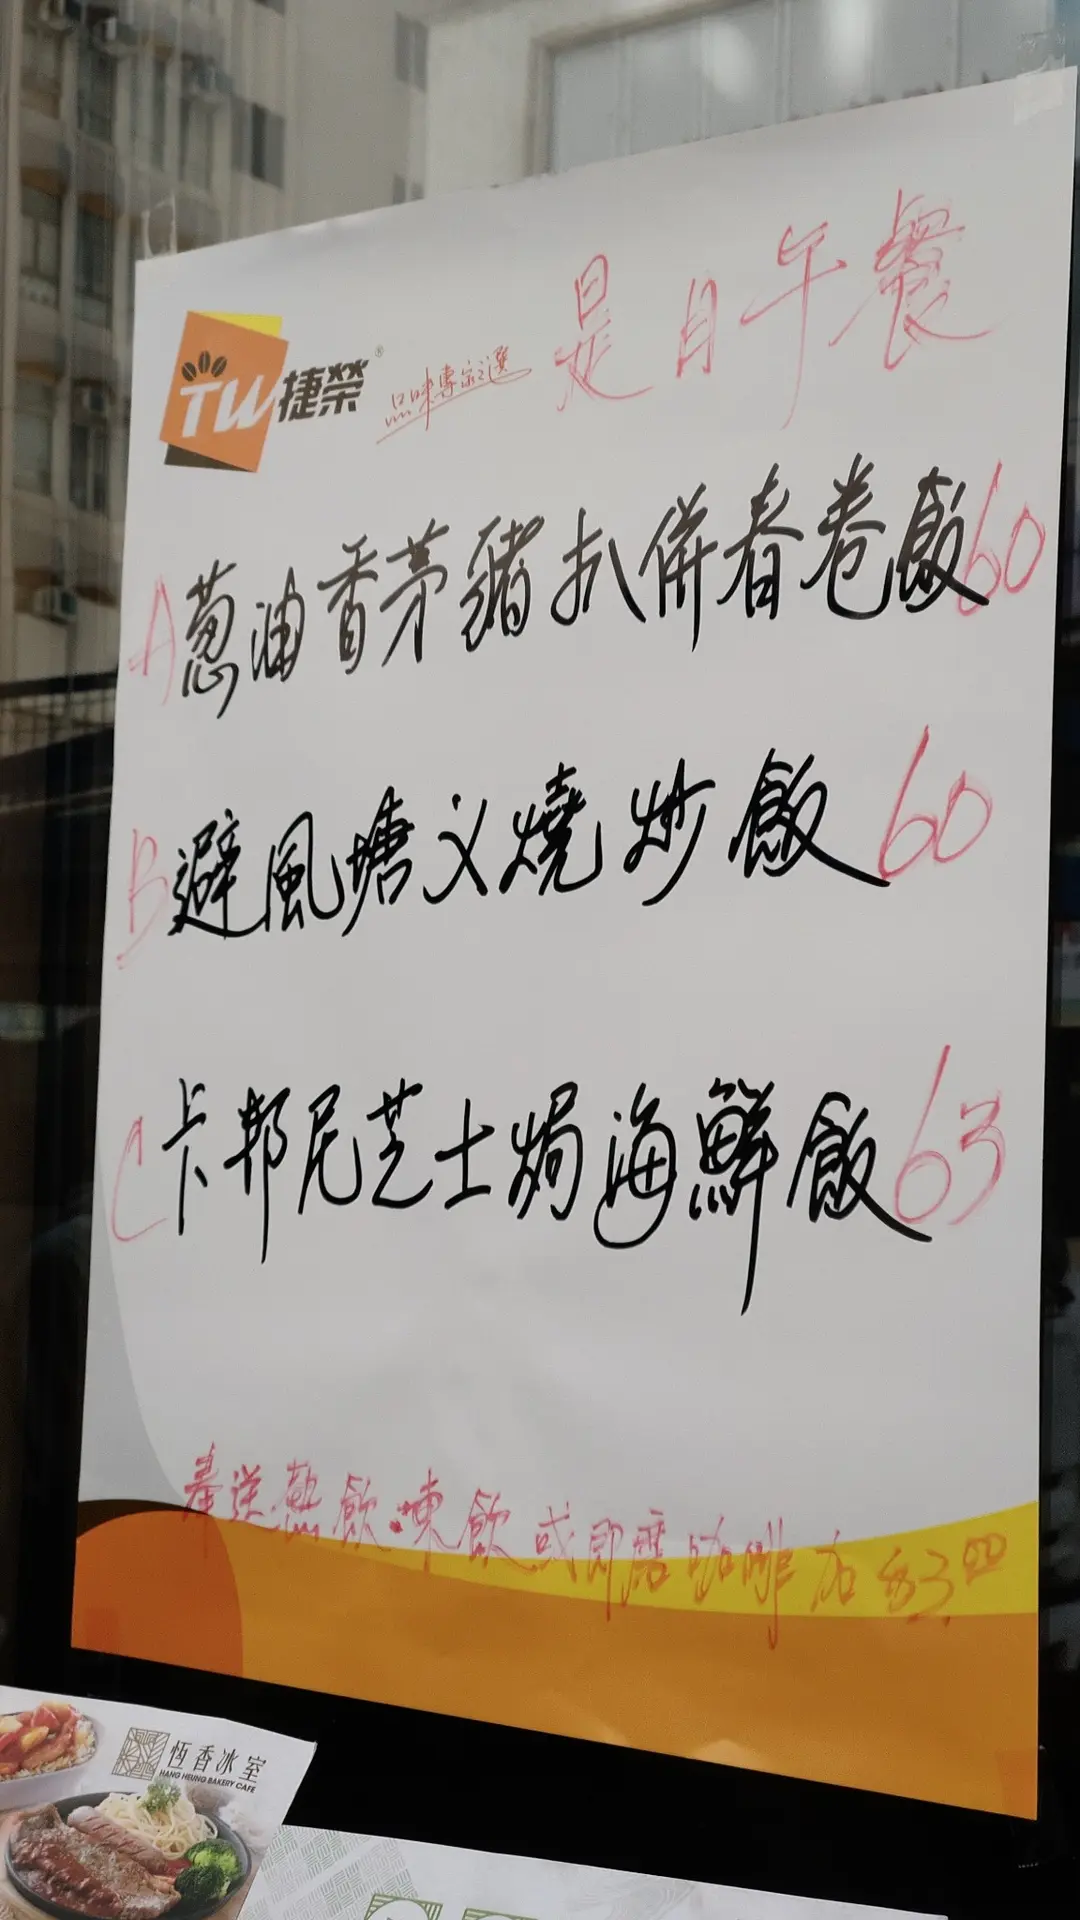 是日午餐
TW捷榮®
品味專家之選
A 葱油香茅豬扒併春卷飯 60
B 避風塘义燒炒飯 60
C 卡邦尼芝士焗海鮮飯 63
奉送熱飲.凍飲或即磨咖啡加$3
恆香冰室
HANG HEUNG BAKERY CAFE